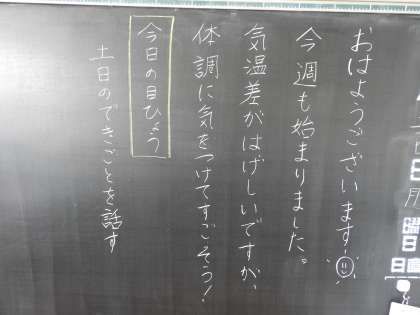 おはようございます
今週も始まりました。
気温差がはげしいですが、
体調に気をつけてすごそう!
今日の目ひょう
土日のできごとを話す
月
日
曜日
日直